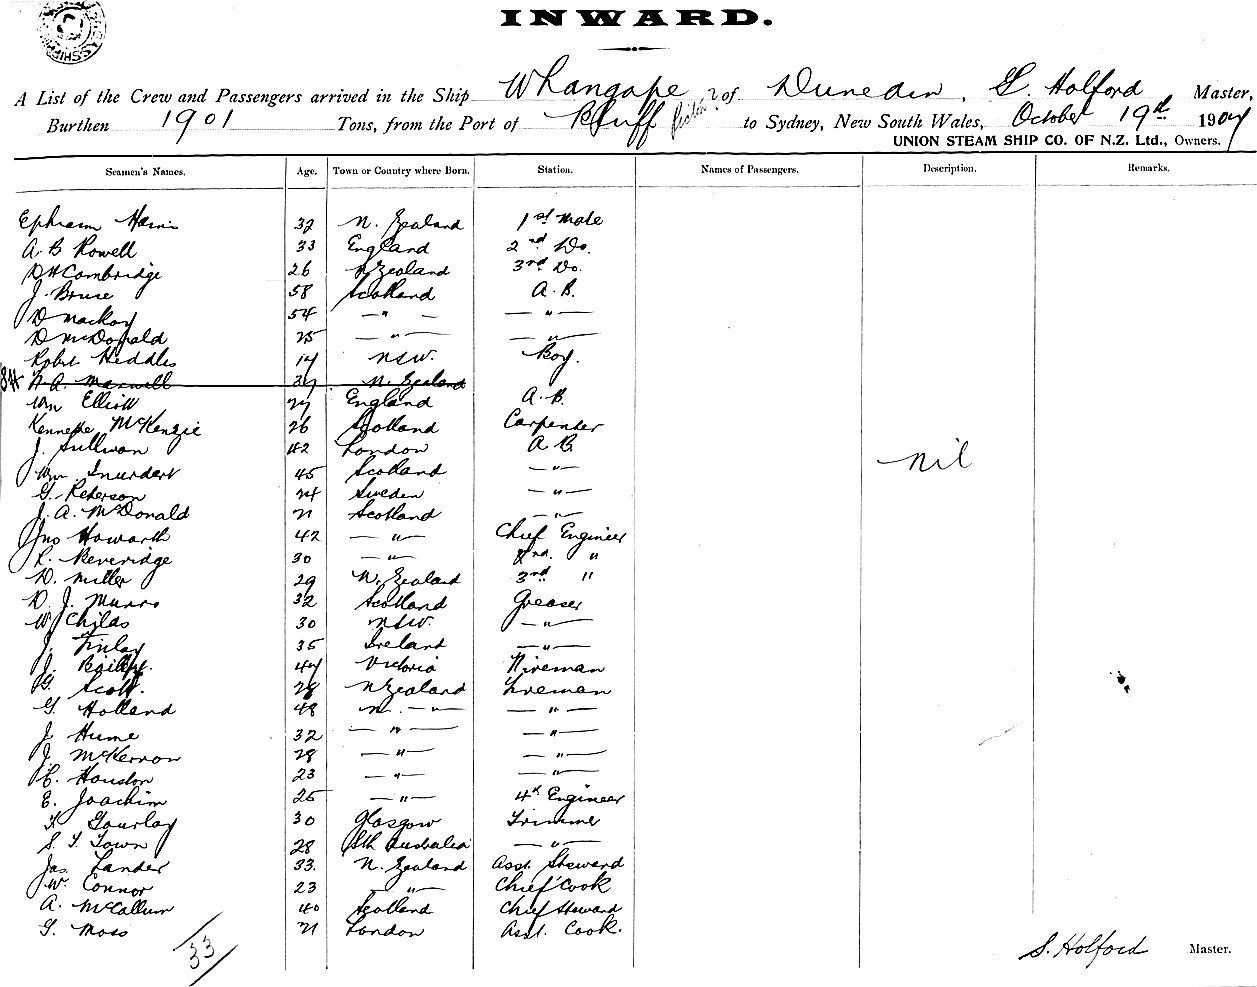 INWARD.
A List of the Crew and Passengers arrived in the Ship Whangape of Dunedin, S. Holford Master,
Burthen 1901 Tons, from the Port of Bluff to Sydney, New South Wales, October 19th 1904
UNION STEAM SHIP CO. OF N.Z. Ltd., Owners.
Seamen's Names. Age. Town or Country where Born. Station. Names of Passengers. Description. Remarks.
Ephraim Harris 32 N. Zealand 1st Mate
A. B Rowell 33 England 2nd Do.
D H Cambridge 26 N Zealand 3rd Do.
J. Bruce 58 Scotland A. B.
D Mackay 54 — " — — " —
D McDonald 25 — " — — " —
Robt Heddles 14 NSW. Boy.
A. Maxwell N. Zealand
Wm Elliott 27 England A. B.
Kenneth McKenzie 26 Scotland Carpenter
J. Sullivan 42 London A B.
Wm 45 Scotland — " —
G. Peterson 24 Sweden — " —
J. A. McDonald 21 Scotland — " —
Jno Howarth 42 — " — Chief Engineer
R. Beveridge 30 — " — 2nd. "
D. Miller 29 N. Zealand 3rd "
D. J. Munro 32 Scotland Greaser
W Childs 30 NSW. — " —
J. Finlay 35 Ireland — " —
J. Bailey. 44 Victoria Fireman
G. Scott. 28 N Zealand Fireman
G Holland 48 N. — " — — " —
J Hume 32 — " — — " —
J. McKernon 28 — " — — " —
C. Houston 23 — " — — " —
E. Joachim 25 — " — 4th Engineer
Gourlay 30 Glasgow Trimmer
S. T. Town 28 Sth Australia — " —
Jas. Lander 33. N. Zealand Asst. Steward
W. Connor 23 — " — Chief Cook
A. McCallum 40 Scotland Chief Steward
G. Moss 21 London Asst. Cook.
nil
33
S. Holford Master.